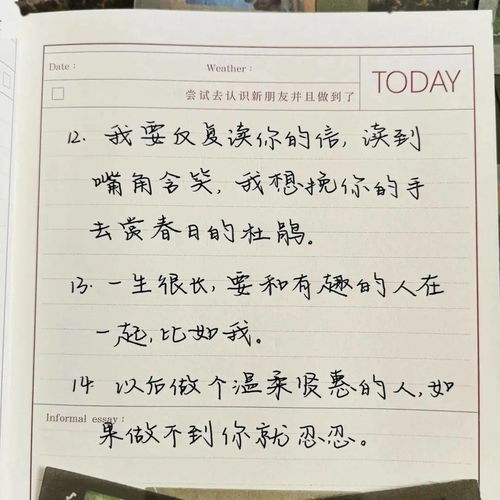 Date : Weather : TODAY
尝试去认识新朋友并且做到了
12. 我要反复读你的信, 读到
嘴角含笑, 我想挽你的手
去赏春日的杜鹃。
13. 一生很长, 要和有趣的人在
一起, 比如我。
14. 以后做个温柔贤惠的人, 如
Informal essay :
果做不到你就忍忍。